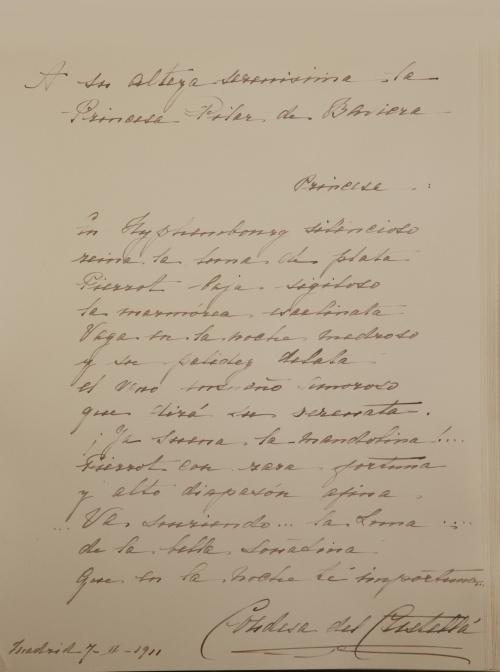 A su alteza serenisima la
Princesa Pilar de Baviera
Princesa :
En Nyphembourg silencioso
reina la luna de plata
Pierrot baja sigiloso
la marmórea escalinata
Vaga en la noche medroso
y su palidez delata
el vano ensueño amoroso
que dirá su serenata.
¡Ya suena la mandolina!...
Pierrot con rara fortuna
y alto diapasón afina.
... Va sonriendo... la Luna ....
de la bella soñadina
que en la noche te importuna..
Condesa del Castellá
Madrid 7-11-1911